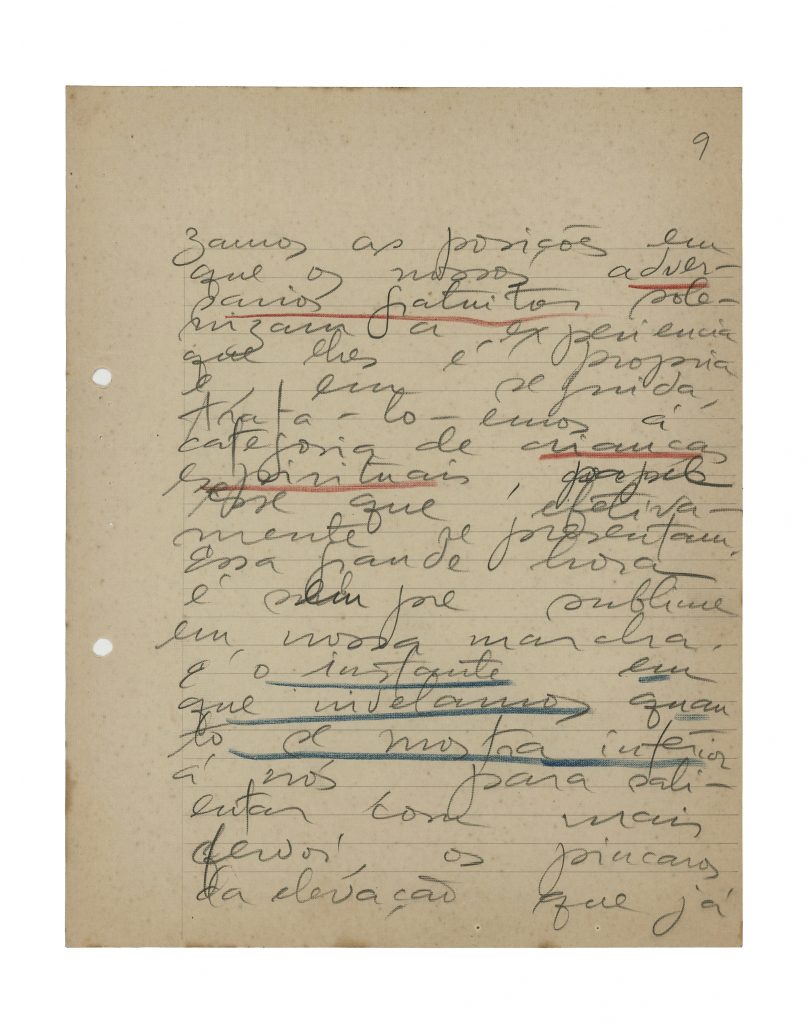 9
zamos as posições em
que os nossos adver-
sarios gratuitos sole-
nizam a experiencia
que lhes é propria
e, em seguida,
trata-lo-emos á
categoria de crianças
espirituais,
esse que, efetiva-
mente se apresentam.
Essa grande hora
é sempre sublime
em nossa marcha.
É o instante em
que nivelamos quan
to se mostra inferior
á nós para sali-
entar com mais
fervor, os pincaros
da elevação que já